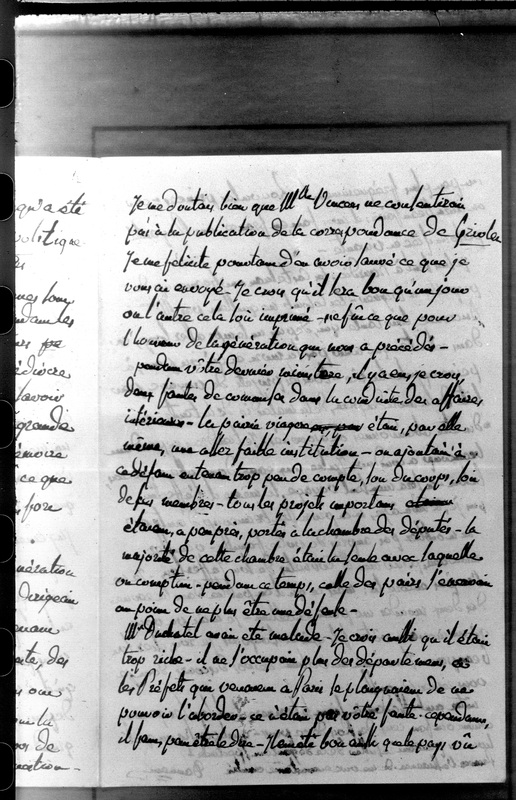 qu'a été
politique
mes loin
médiocre
l'avoir
grande
mémoire
ce que
fore
génération
dirigeait
de
Je me doutais bien que Mlle Vincens ne consentirait
pas à la publication de la correspondance de Grivolen
Je me felicite pourtant d'en avoir sauvé ce que je
vous ai envoyé - Je crois qu'il sera bon qu'un jour
ou l'autre cela soit imprimé - ne fût ce que pour
l'honneur de la génération qui nous a précédés -
pendant vôtre dernier ministere, il y a eu, je crois,
deux fautes de commises dans la conduite des affaires
intérieures - la pairie viagere étoit, par elle
même, une assez faible institution - on ajoutait à
ce défaut en tenant trop peu de compte, son du corps, soit
de ses membres - tous les projets importans
étaient, a peu près, portés à la chambre des députés - la
majorité de cette chambre était la seule avec laquelle
on comptait - pendant ce temps, celle des pairs s'énervait
au point de ne plus être une défense -
Mr Duchatel avait eté malade - Je crois aussi qu'il était
trop riche - il ne s'occupait plus des départemens,
les Préfets qui venaient a Paris se plaignaient de ne
pouvoir l'aborder - ce n'était pas vôtre faute - cependant,
il faut, peut être le dire - Il eut été bon aussi que le pays vît